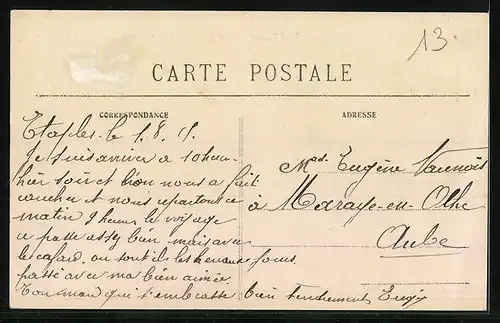 13
CARTE POSTALE
CORRESPONDANCE
ADRESSE
Etaples le 1.8.15.
Je suis arrivé a 10 heur
hier soir et bien nous a fait
coucher et nous repartont ce
matin 9 heures le voyage
ce passe assez bien mais avec
le cafard, ou sont il les heureux jours
passé avec ma bien aimée
Ton mari qui t'embrasse bien tendrement
Mad. Eugène
à Maraye-en-Othe
Aube